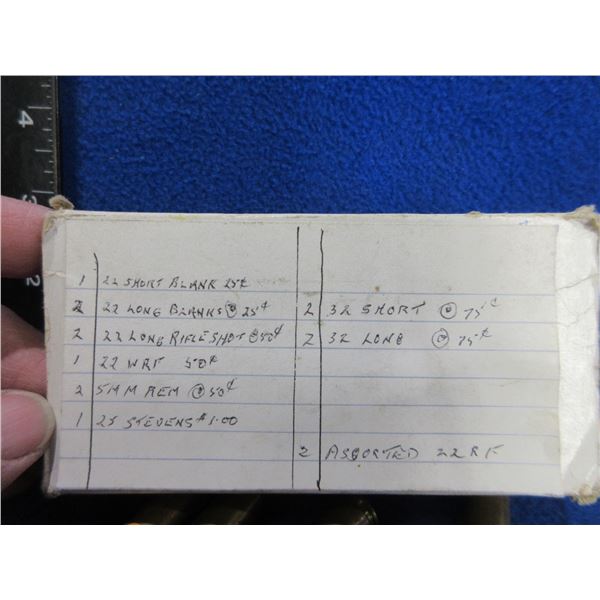 4
3
2
1 22 SHORT BLANK 25¢
2 22 LONG BLANKS @ 25¢
2 22 LONG RIFLE SHOT @ 50¢
1 22 WRF 50¢
2 5MM REM @ 50¢
1 25 STEVENS $1.00
2 32 SHORT @ 75¢
2 32 LONG @ 75¢
2 ASSORTED 22 RF